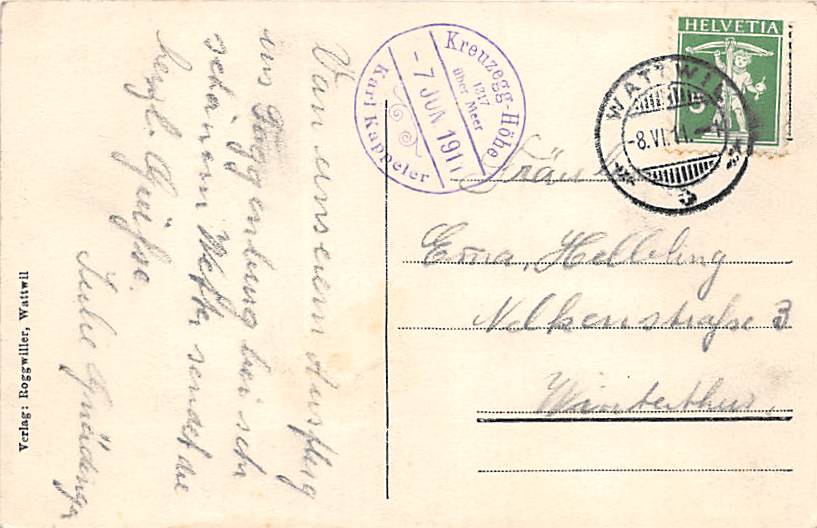 HELVETIA
5
WATTWIL
-8.VI.11.-
Kreuzegg-Höhe
1317
über Meer
- 7 JUN 1911
Karl Kappeler
Fräulein
Emma, Helbling
Nelkenstraße 3
Winterthur.
Von unserem Ausflug
ins Toggenburg bei sehr
schönem Wetter sendet die
herzl. Grüsse.
Julie
Verlag: Roggwiller, Wattwil